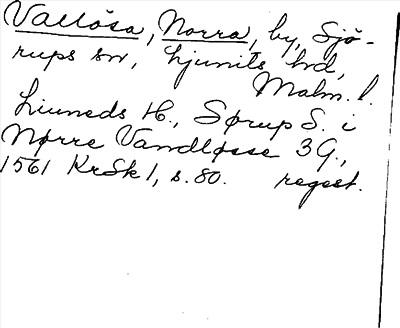 Vallösa, Norra, by, Sjö-
rups sn, Ljunits hd,
Malm. l.
Liuneds H., Sørup S. i
Nørre Vandløsse 3 G.,
1561 KrSk 1, s. 80. regest.